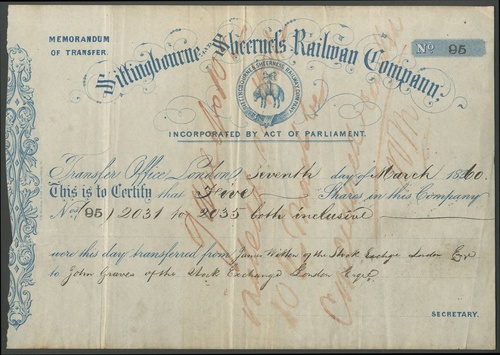 MEMORANDUM
OF TRANSFER.
Sittingbourne AND Sheerness Railway Company.
No. 95
SITTINGBOURNE & SHEERNESS RAILWAY COMPANY
INCORPORATED BY ACT OF PARLIAMENT.
Transfer Office, London, Seventh day of March 1860.
This is to Certify that Five Shares in this Company
Nos. 2031 to 2035 both inclusive
were this day transferred from James of the Stock Exchange London
to John Graves of the Stock Exchange London
SECRETARY.